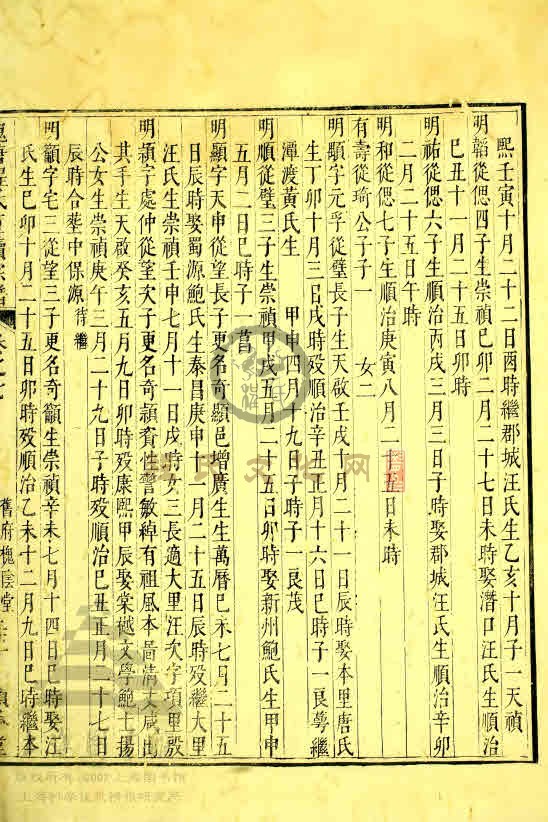 熙壬寅十月二十二日酉時繼郡城汪氏生乙亥十月子一天禎
明韜從偲四子生崇禎己卯二月二十七日未時娶潛口汪氏生順治
己丑十一月二十五日卯時
明祐從偲六子生順治丙戌三月三日子時娶郡城汪氏生順治辛卯
二月二十五日午時
明和從偲七子生順治庚寅八月二十五日未時
有壽從琦公子子一 女二
明顒字元孚從璧長子生天啟壬戌十月二十一日辰時娶本里唐氏
生丁卯十月三日戌時歿順治辛丑正月十六日巳時子一良蕚繼
潭渡黃氏生 甲申四月十九日子時子一良茂
明順從璧三子生崇禎甲戌五月二十五日卯時娶新州鮑氏生甲申
五月二日巳時子一菖
明顯字天申從望長子更名奇顯邑增廣生生萬曆己未七月二十五
日辰時娶蜀源鮑氏生泰昌庚申十一月二十五日辰時歿繼大里
汪氏生崇禎壬申七月十一日戌時女三長適大里汪次字項里殷
明頴字處仲從望次子更名奇頴資性警敏綽有祖風本邑清丈咸出
其手生天啟癸亥五月九日卯時歿康熙甲辰娶棠樾文學鮑士揚
公女生崇禎庚午三月二十九日子時歿順治己丑正月二十七日
辰時合塟中保源 待繼
明籲字宅三從望三子更名奇籲生崇禎辛未七月十四日巳時娶汪
氏生己卯十月二十五日卯時歿順治乙未十二月九日巳時繼本
舊府槐蔭堂